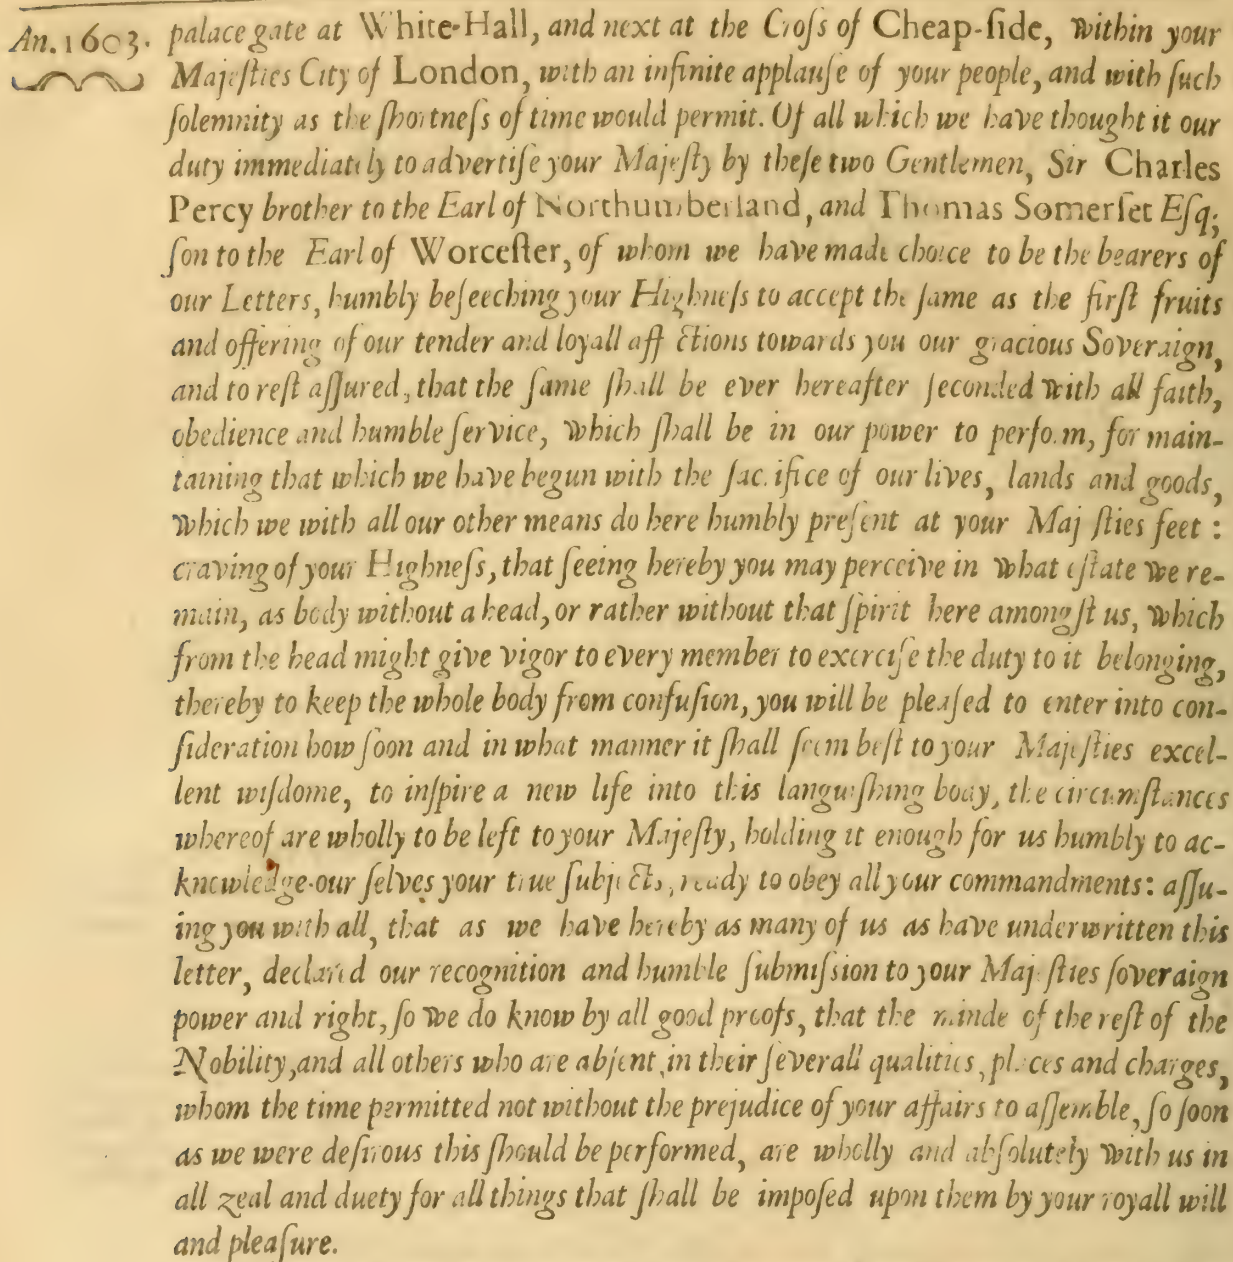 An. 1603. palace gate at White-Hall, and next at the Croſs of Cheap-ſide, within your
Majeſties City of London, with an infinite applauſe of your people, and with ſuch
ſolemnity as the ſhortneſs of time would permit. Of all which we have thought it our
duty immediately to advertiſe your Majeſty by theſe two Gentlemen, Sir Charles
Percy brother to the Earl of Northumberland, and Thomas Somerſet Eſq;
ſon to the Earl of Worceſter, of whom we have made choice to be the bearers of
our Letters, humbly beſeeching your Highneſs to accept the ſame as the firſt fruits
and offering of our tender and loyall affections towards you our gracious Soveraign,
and to reſt aſſured, that the ſame ſhall be ever hereafter ſeconded with all faith,
obedience and humble ſervice, which ſhall be in our power to perform, for main-
taining that which we have begun with the ſacrifice of our lives, lands and goods,
which we with all our other means do here humbly preſent at your Majeſties feet :
craving of your Highneſs, that ſeeing hereby you may perceive in what eſtate we re-
main, as body without a head, or rather without that ſpirit here amongſt us, which
from the head might give vigor to every member to exerciſe the duty to it belonging,
thereby to keep the whole body from confuſion, you will be pleaſed to enter into con-
ſideration how ſoon and in what manner it ſhall ſeem beſt to your Majeſties excel-
lent wiſdome, to inſpire a new life into this languiſhing body, the circumſtances
whereof are wholly to be left to your Majeſty, holding it enough for us humbly to ac-
knowledge our ſelves your true ſubjects, ready to obey all your commandments: aſſu-
ing you with all, that as we have hereby as many of us as have underwritten this
letter, declared our recognition and humble ſubmiſsion to your Majeſties ſoveraign
power and right, ſo we do know by all good proofs, that the minde of the reſt of the
Nobility, and all others who are abſent, in their ſeverall qualities, places and charges,
whom the time permitted not without the prejudice of your affairs to aſſemble, ſo ſoon
as we were deſirous this ſhould be performed, are wholly and abſolutely with us in
all zeal and duety for all things that ſhall be impoſed upon them by your royall will
and pleaſure.